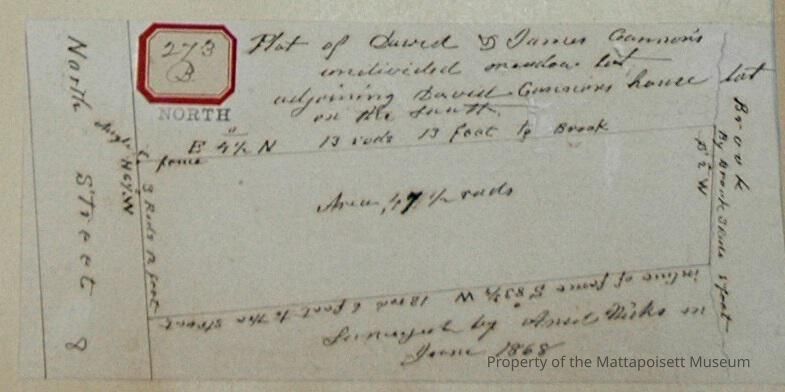 273
B
NORTH
Plat of David & James Cannon's
undivided meadow lot
adjoining David Cannon's house lot
on the South.
E 4½ N 13 rods 13 feet to Brook
fence
North Street 8
3 Rods 12 feet
Area, 47 ½ rods
Brook
By Brook 3 Rods 5 feet
S 2 W
in line of fence S 83¾ W 18 rods 6 feet to the Street
Surveyed by Ansel Weeks in
June 1868
Property of the Mattapoisett Museum